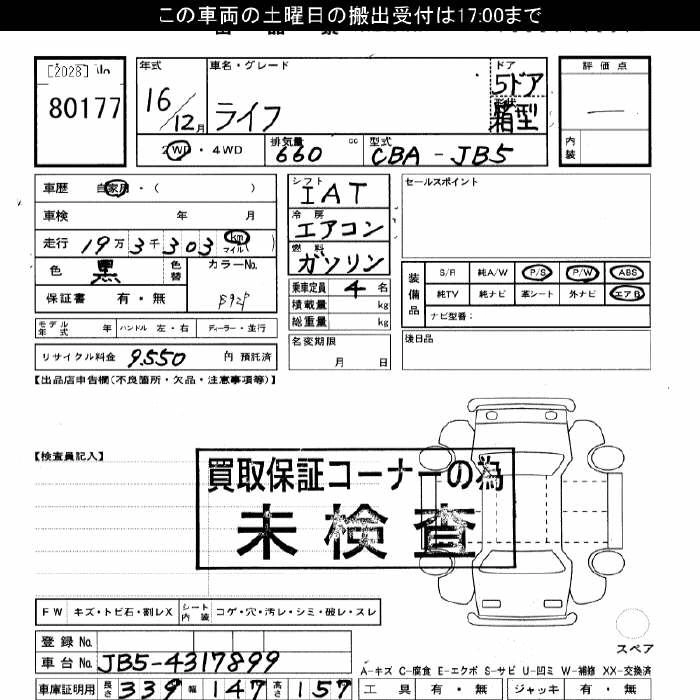 この車両の土曜日の搬出受付は17:00まで
[2028] No
80177
年式
16/12月
車名・グレード
ライフ
ドア
5ドア
形状
箱型
評価点
内装
2WD・4WD
排気量
660 cc
型式
CBA-JB5
車歴 自家用・( )
車検 年 月
走行 19万3千303 km マイル( )
色 黒 色替 カラーNo.
保証書 有・無
モデル年式 年 ハンドル 左・右 ディーラー・並行
リサイクル料金 9.550 円 預託済
シフト
IAT
冷房
エアコン
燃料
ガソリン
乗車定員 4 名
積載量 kg
総重量 kg
名変期限
月 日
セールスポイント
装備品
S/R 純A/W P/S P/W ABS
純TV 純ナビ 革シート 外ナビ エアB
ナビ型番:
後日品
【出品店申告欄(不良箇所・欠品・注意事項等)】
【検査員記入】
買取保証コーナーの為
未検査
FW キズ・トビ石・割レX シート内装 コゲ・穴・汚レ・シミ・破レ・スレ
登録No.
車台No. JB5-4317899
車庫証明用 長さ 339 幅 147 高さ 157
スペア
A-キズ C-腐食 E-エクボ S-サビ U-凹ミ W-補修 XX-交換済
工具 有・無 ジャッキ 有・無